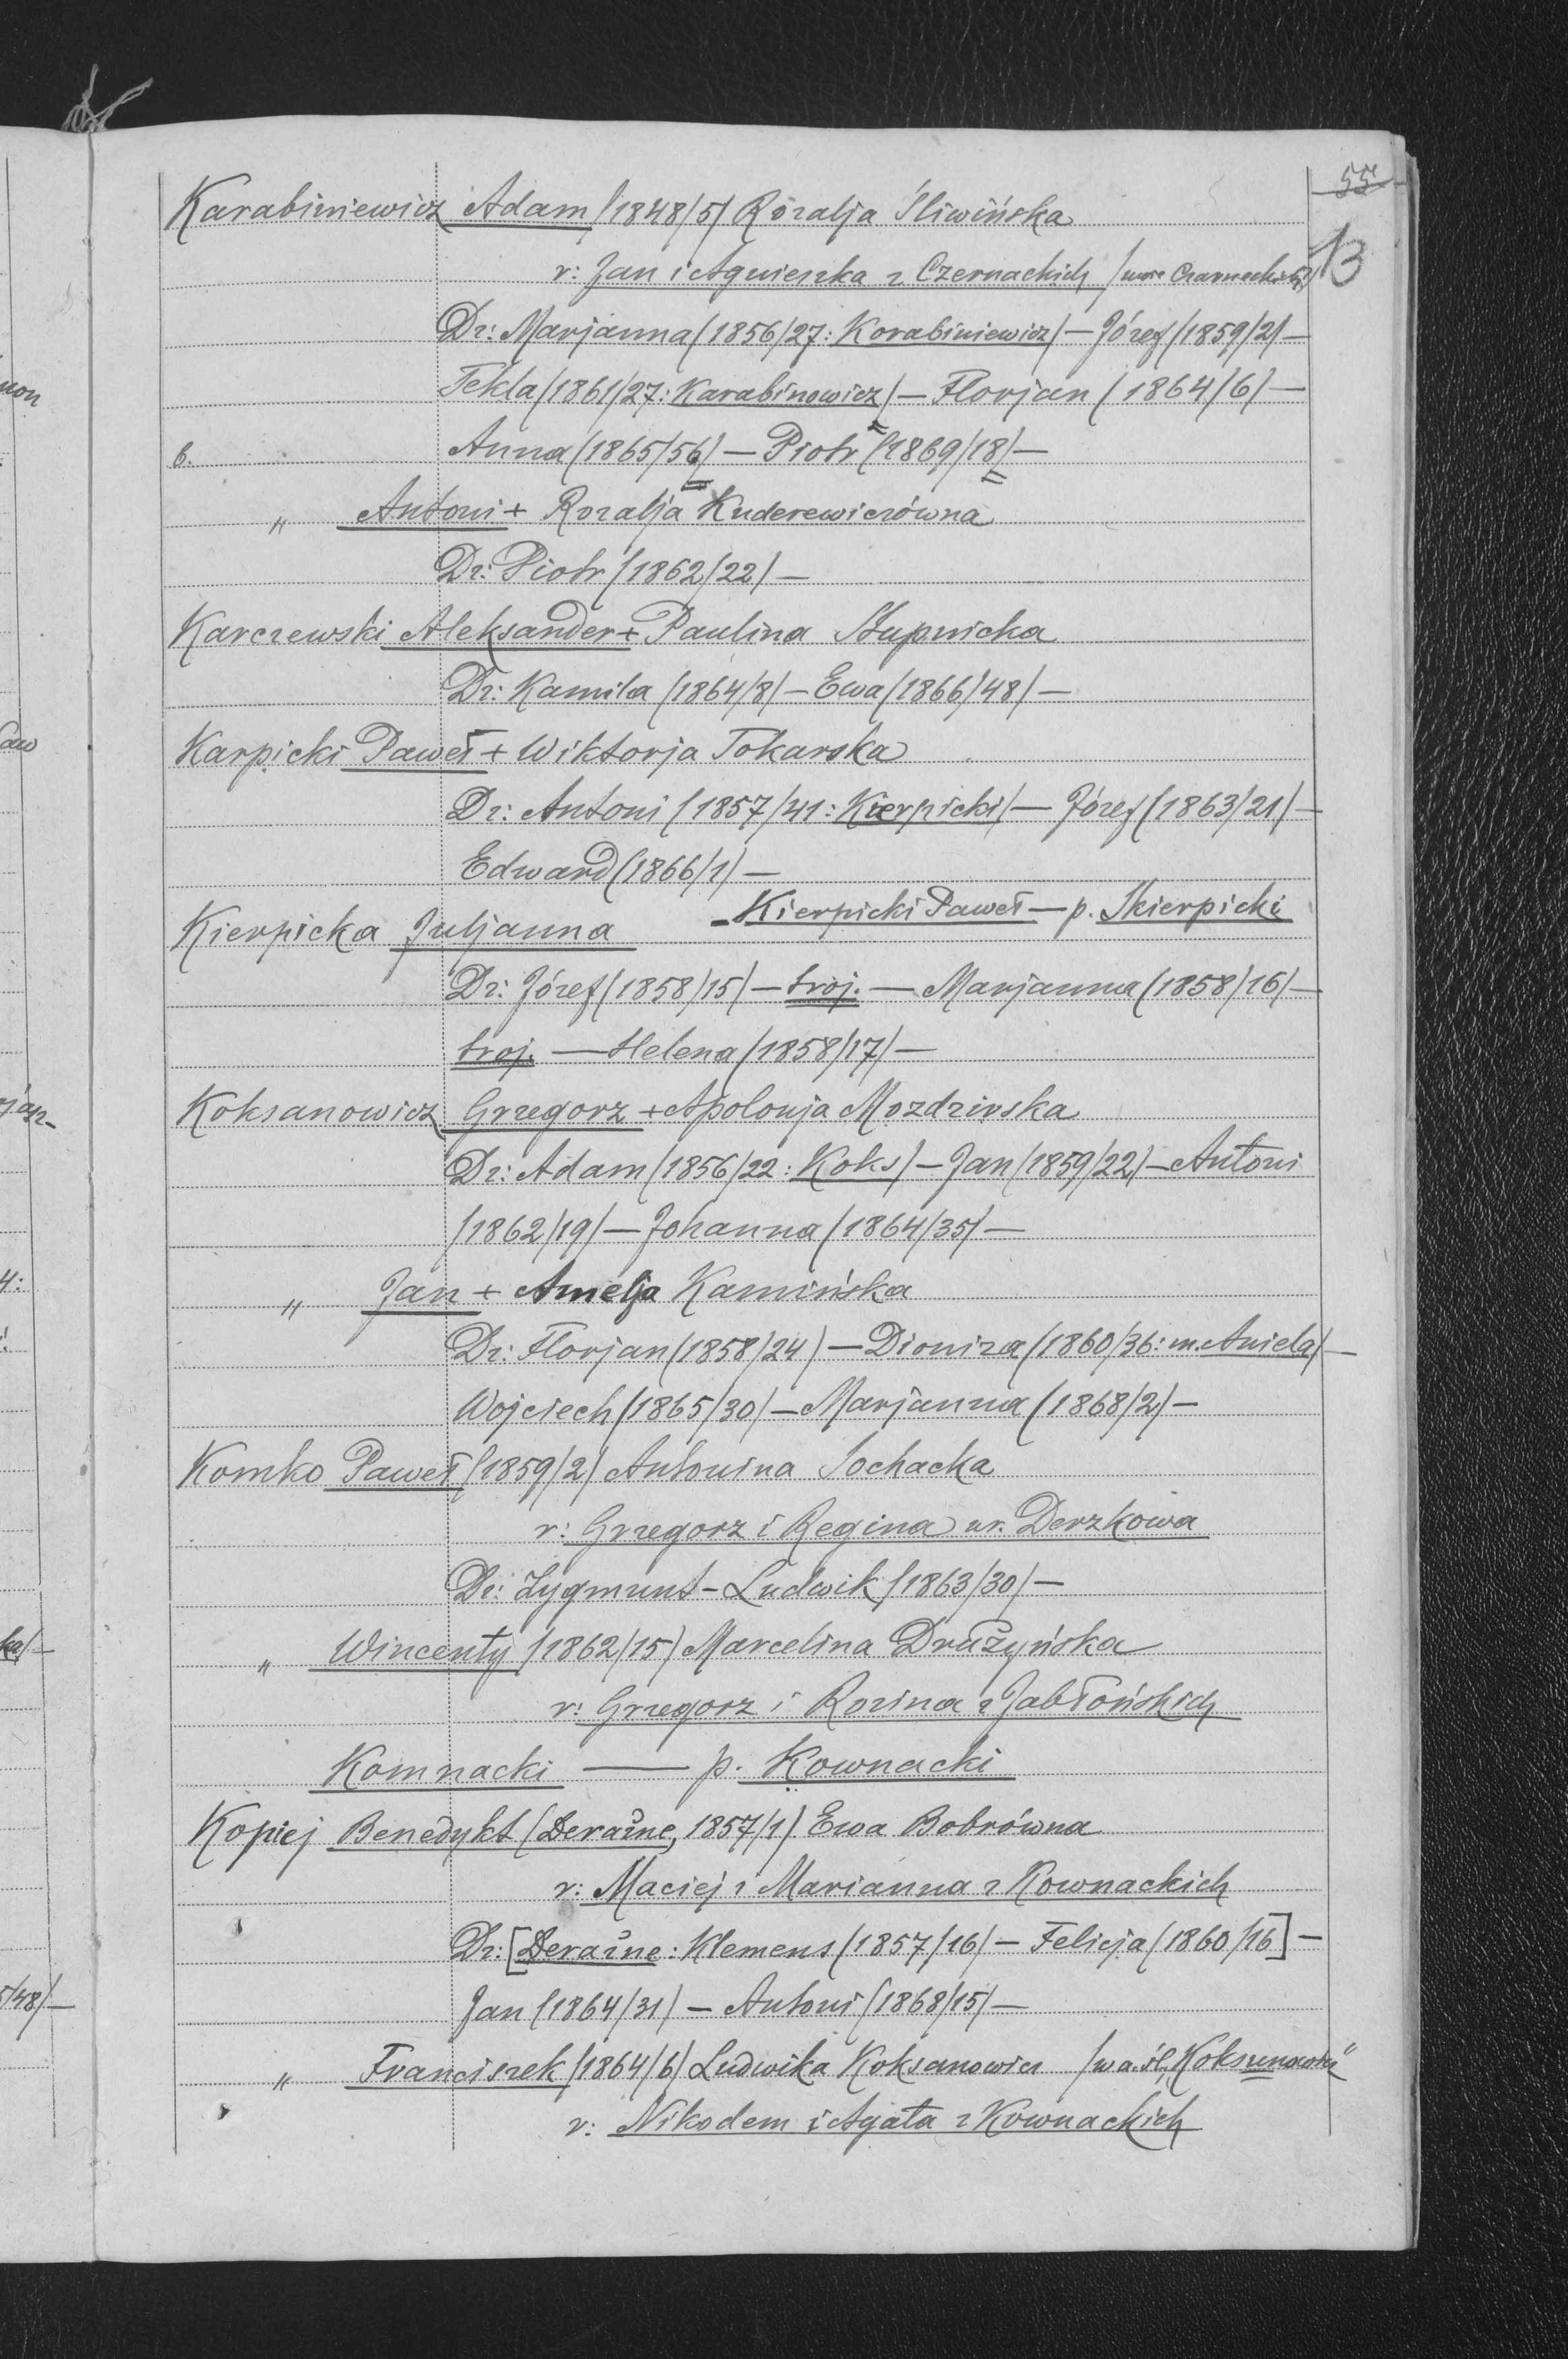 55
13
Karabiniewicz Adam /1848/5/ Rozalja Śliwińska
r: Jan i Agnieszka z Czernackich
Dz: Marjanna /1856/27: Korabiniewicz/ — Józef /1859/2/ —
Tekla /1861/27: Karabinowicz/ — Florjan /1864/6/ —
6. Anna /1865/56/ — Piotr /1869/18/ —
" Antoni + Rozalja Kuderewiczówna
Dz: Piotr /1862/22/ —
Karczewski Aleksander + Paulina Słupnicka
Dz: Kamila /1864/8/ — Ewa /1866/48/ —
Karpicki Paweł + Wiktorja Tokarska
Dz: Antoni /1857/41: Kierpicki/ — Józef /1863/21/ —
Edward /1866/1/ —
- Kierpicki Paweł — p. Skierpicki
Kierpicka Juljanna
Dz: Józef /1858/15/ — troj. — Marjanna /1858/16/ —
troj. — Helena /1858/17/ —
Koksanowicz Grzegorz + Apolonja Mozdzirska
Dz: Adam /1856/22: Koks/ — Jan /1859/22/ — Antoni
/1862/19/ — Johanna /1864/35/ —
" Jan + Amelja Kamińska
Dz: Florjan /1858/24/ — Dioniza /1860/36: m. Aniela/ —
Wojciech /1865/30/ — Marjanna /1868/2/ —
Komko Paweł /1859/2/ Antonina Sochacka
r: Grzegorz i Regina ur. Derzkowa
Dz: Zygmunt-Ludwik /1863/30/ —
" Wincenty /1862/15/ Marcelina Drużyńska
r: Grzegorz i Rozina z Jabłońskich
Komnacki — p. Kownacki
Kopiej Benedykt /Deraźne, 1857/1/ Ewa Bobrówna
r: Maciej i Marianna z Kownackich
Dz: [Deraźne: Klemens /1857/16/ — Felicja /1860/16] —
Jan /1864/31/ — Antoni /1868/15/ —
" Franciszek /1864/6/ Ludwika Koksanowicz /w a. śl. „Koksunowicz"
r: Nikodem i Agata z Kownackich